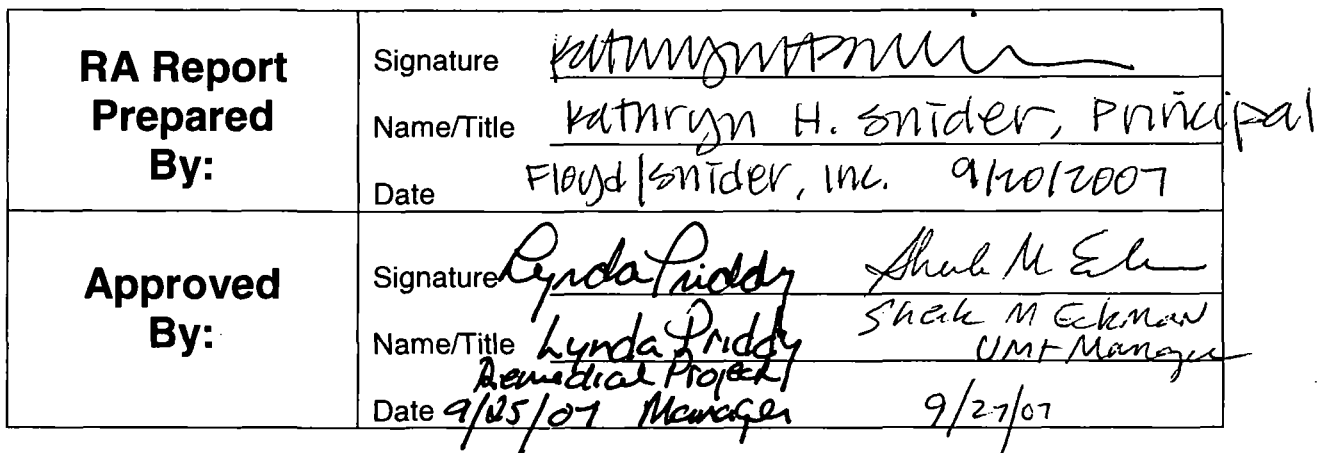 RA Report Prepared By:
Signature
Name/Title Kathryn H. Snider, Principal
Date Floyd|Snider, Inc. 9/20/2007
Approved By:
Signature Lynda Priddy
Name/Title Lynda Priddy M Eckman
Remedial Project Manager
Date 9/25/07 9/27/07